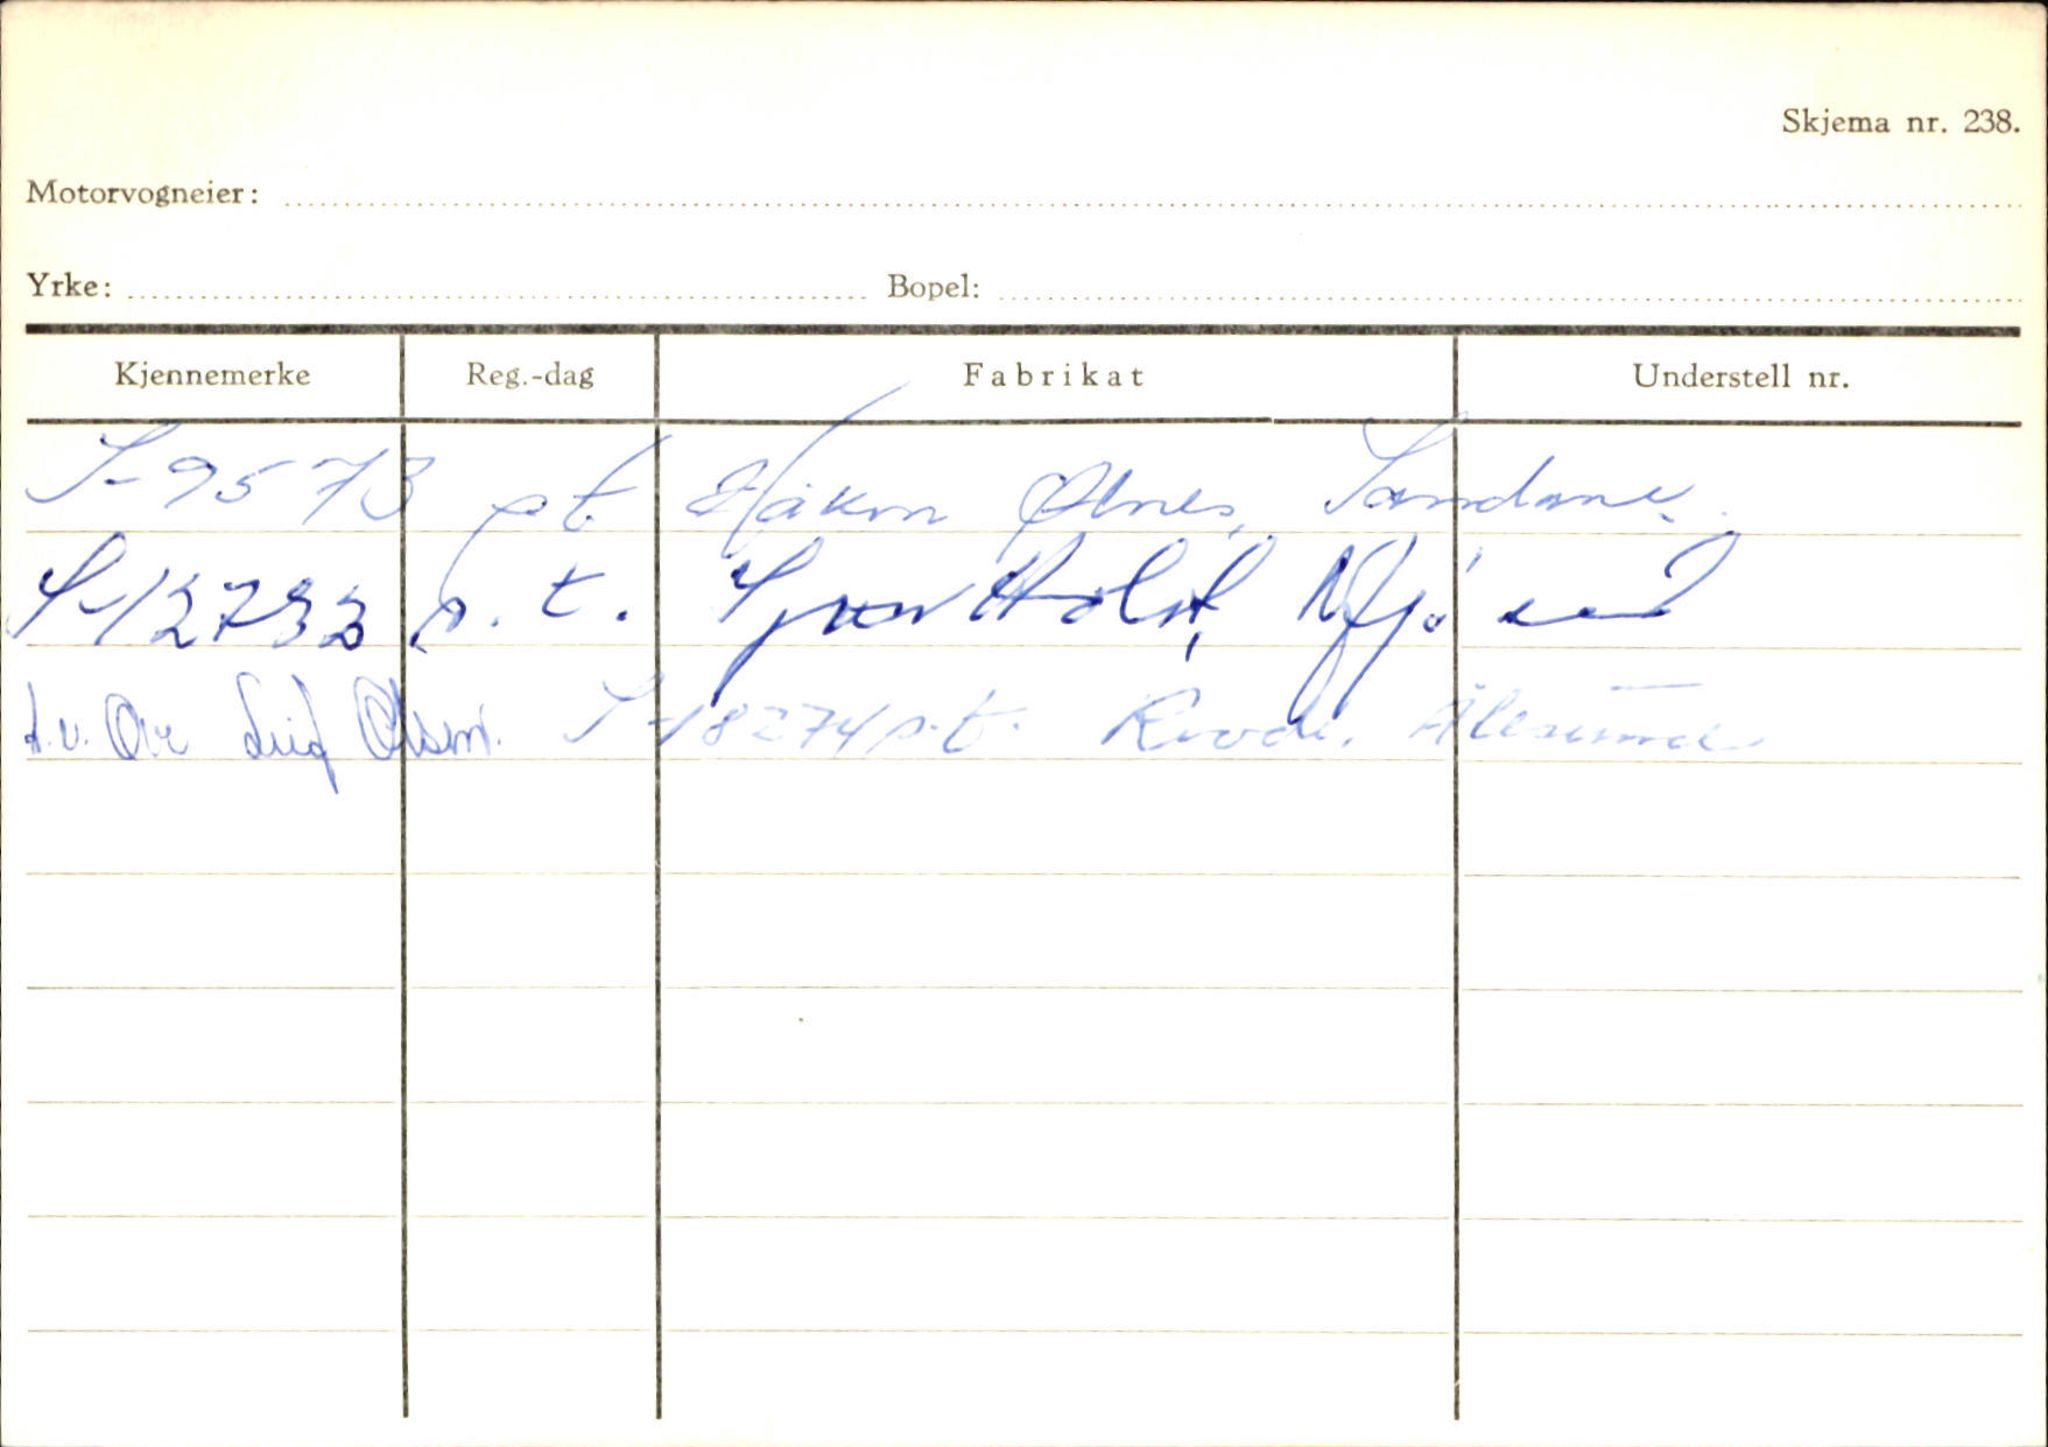 Skjema nr. 238.
Motorvogneier:
Yrke: Bopel:
Kjennemerke Reg.-dag Fabrikat Understell nr.
S-9573 p.t. Håkon Ølnes, Sandane.
S-12733 p.t. Holst,
f.v. Ove Leif Olsen. S-18274 p.t. Ålesund